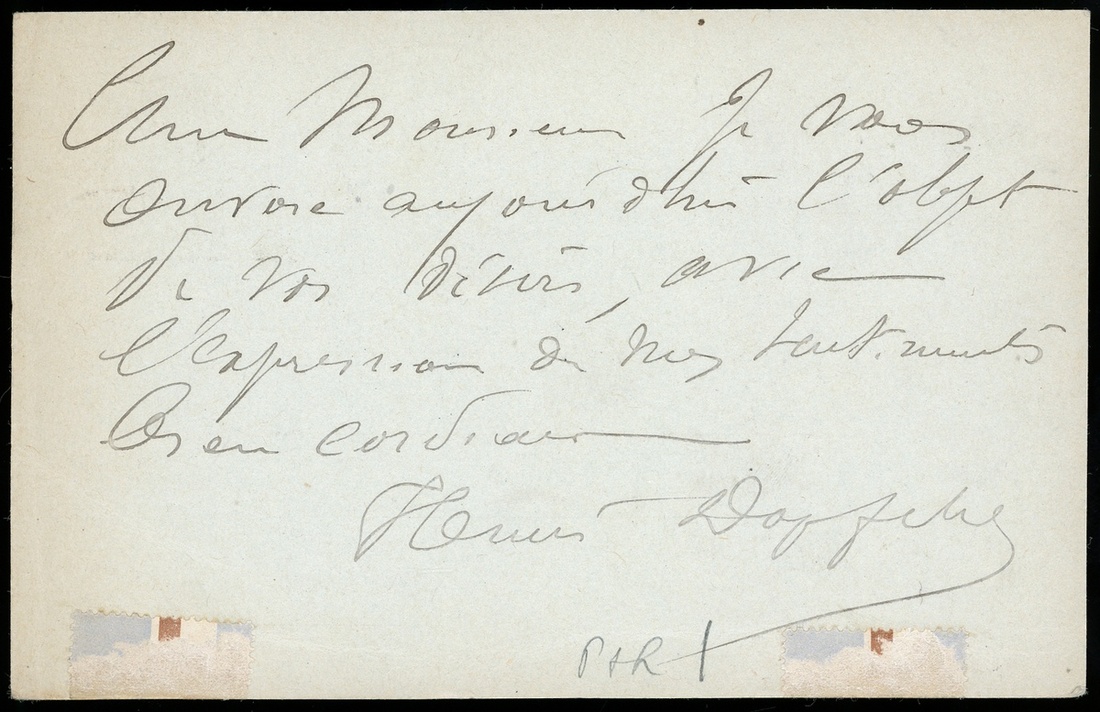 Cher Monsieur Je vous
envoie aujourd'hui l'objet
de vos désirs, avec
l'expression de mes sentiments
bien cordiaux
Henri